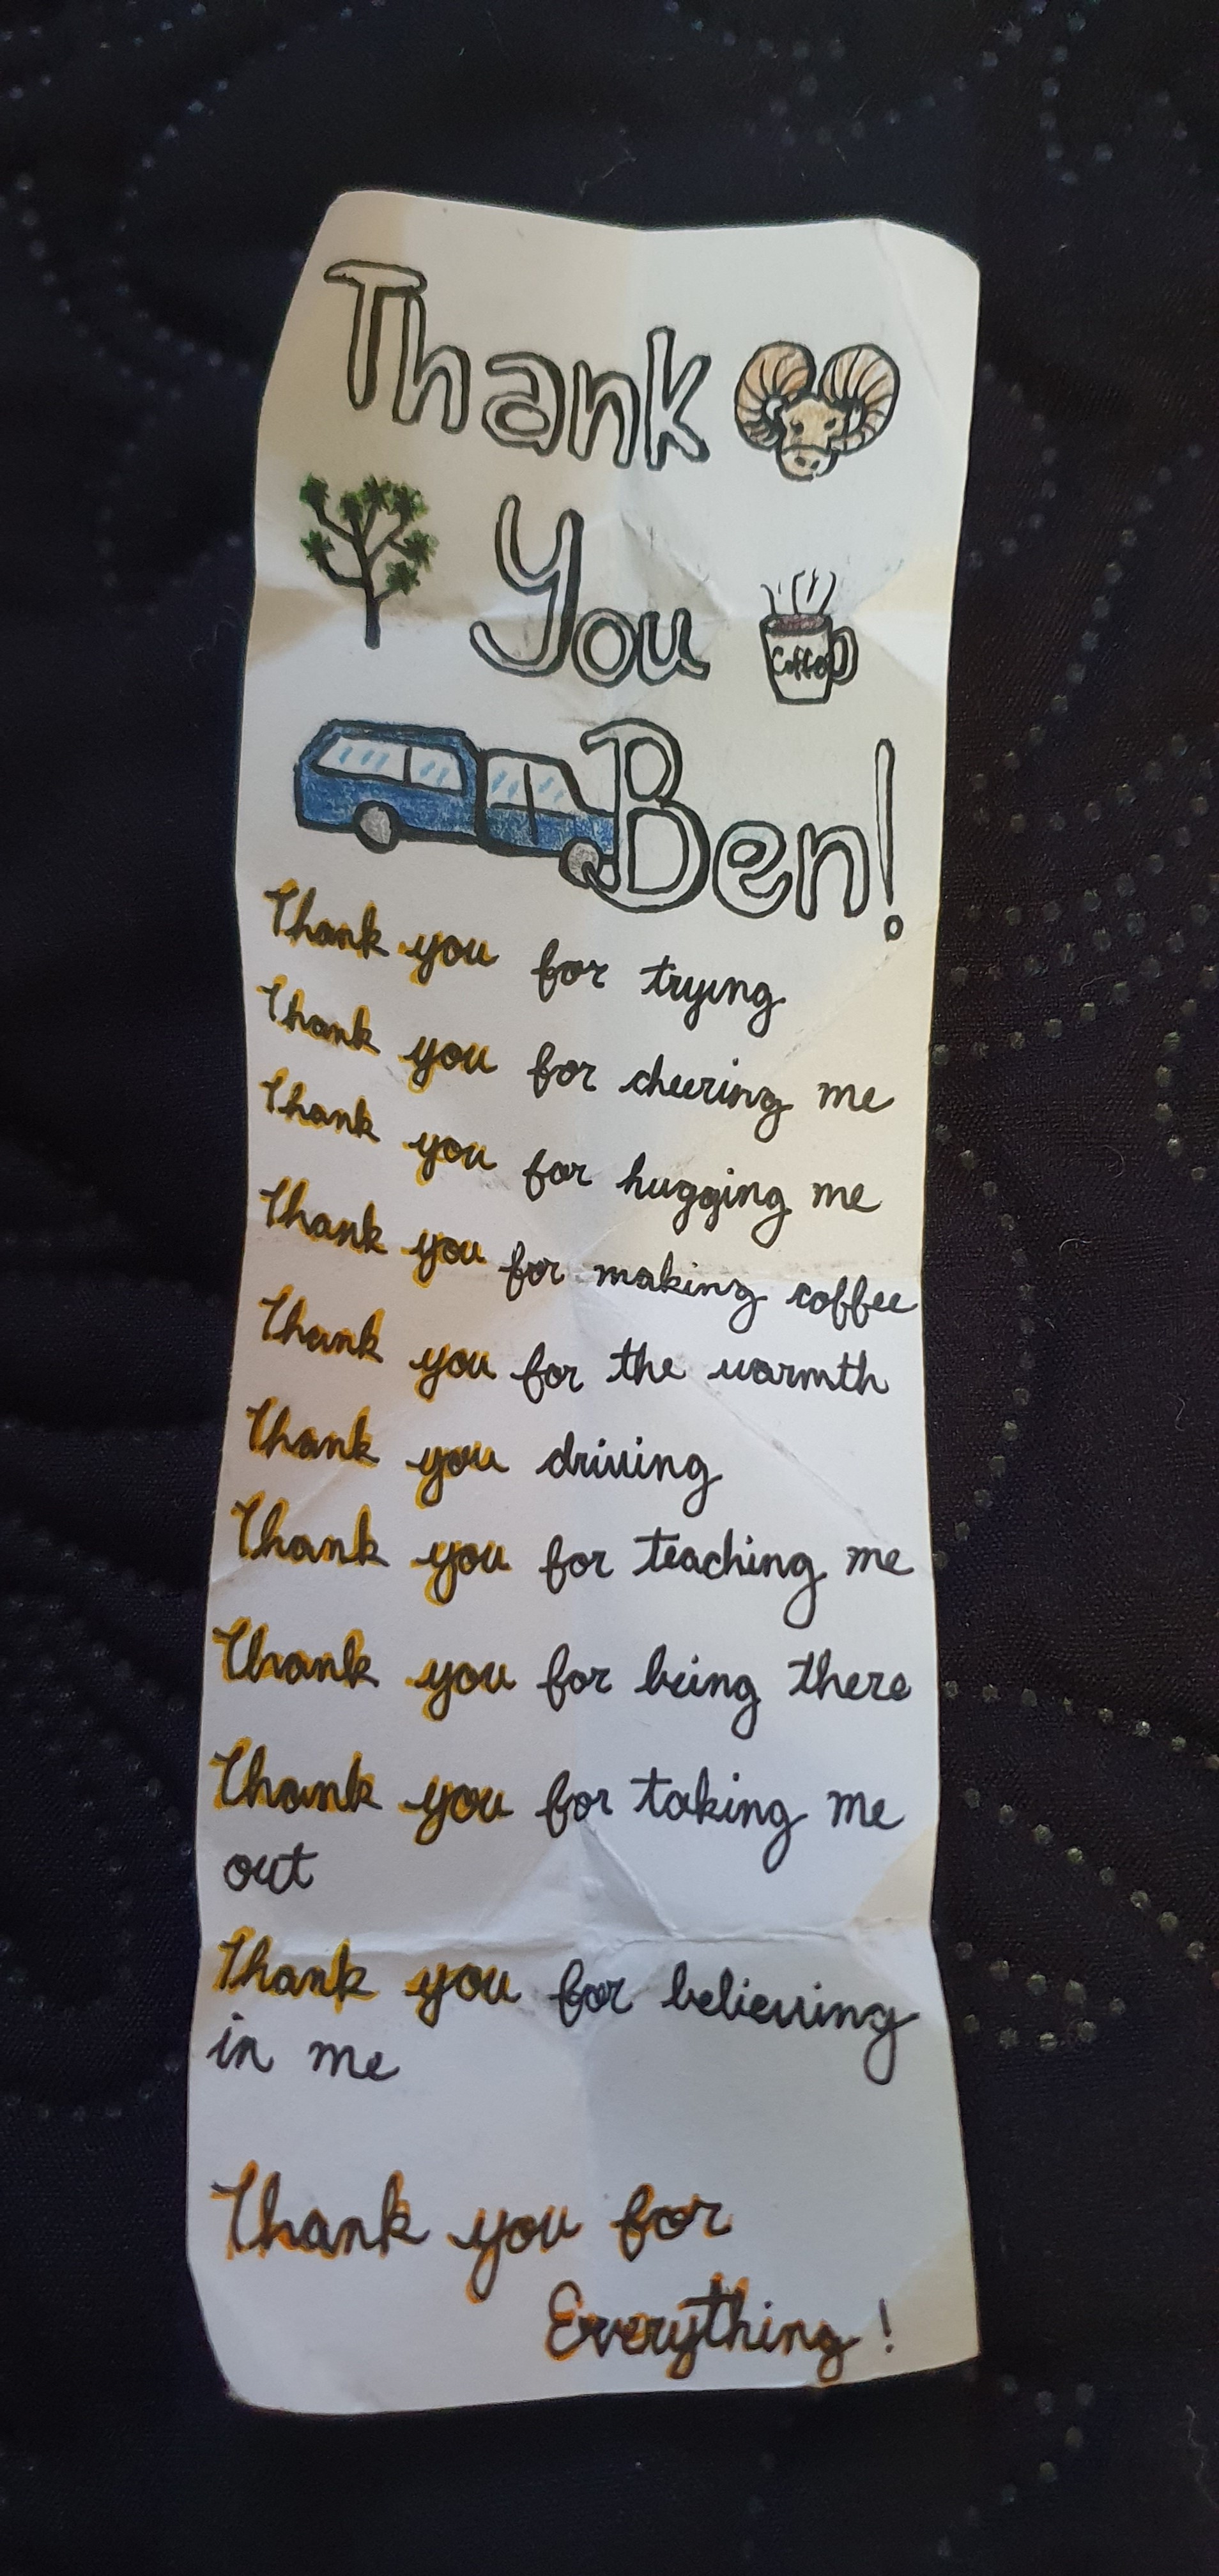 Thank
You
Coffee
Ben!
Thank you for trying
Thank you for cheering me
Thank you for hugging me
Thank you for making coffee
Thank you for the warmth
Thank you driving
Thank you for teaching me
Thank you for being there
Thank you for taking me
out
Thank you for believing
in me
Thank you for
Everything!